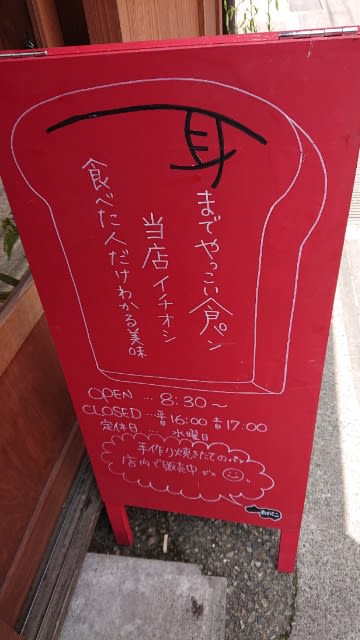 耳までやっこい食パン
当店イチオシ
食べた人だけわかる美味
OPEN … 8:30～
CLOSED … 平日16:00 土日17:00
定休日 … 水曜日
手作り焼きたてのパン
店内で販売中です